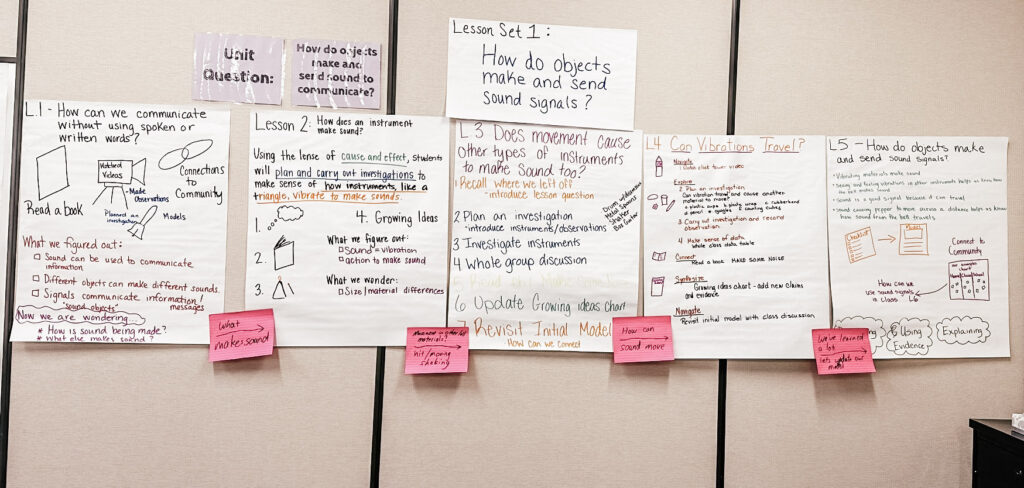 Unit
Question:
How do objects
make and
send sound to
communicate?
Lesson Set 1:
How do objects
make and send
sound signals?
L.1 - How can we communicate
without using spoken or
written words?
Read a book
Watched
Videos
- Made
Observations
Planned an
investigation
Models
Connections
to
Community
What we figured out:
Sound can be used to communicate
information
Different objects can make different sounds.
Signals communicate information/
messages
"sound objects"
Now we are wondering...
* How is sound being made?
* What else makes sound?
What
makes sound
Lesson 2: How does an instrument
make sound?
Using the lense of cause and effect, students
will plan and carry out investigations to
make sense of how instruments, like a
triangle, vibrate to make sounds.
1.
2.
3.
4. Growing Ideas
What we figure out:
Sound = vibration
action to make sound
What we wonder:
Size/material differences
materials?
hit/moving
shaking
L.3 Does movement cause
other types of instruments
to make sound too?
1 Recall where we left off
- introduce lesson question
2 Plan an investigation
- introduce instruments/observations
Drum
Shaker
Box Guitar
3 Investigate instruments
4 Whole group discussion
6 Update Growing ideas chart
7 Revisit Initial Model
How can we connect
How can
sound move
L4 Can Vibrations Travel?
Navigate
Explore
2. Plan an investigation
Can vibration travel and cause another
material to move?
3. Carry out investigation and record
observation.
4. Make sense of data
whole class data table
Connect
Read a book MAKE SOME NOISE
Synthesize
Growing ideas chart - add new claims
and evidence
Navigate
Revisit initial model with class discussion
we've learned
a lot
lets update our
model
L5 - How do objects make
and send sound signals?
Vibrating materials make sound
Sound is a good signal because it can travel
Checklist
Model
Connect to
Community
How can we
use sound signals
in class
L6
Using
Evidence
Explaining